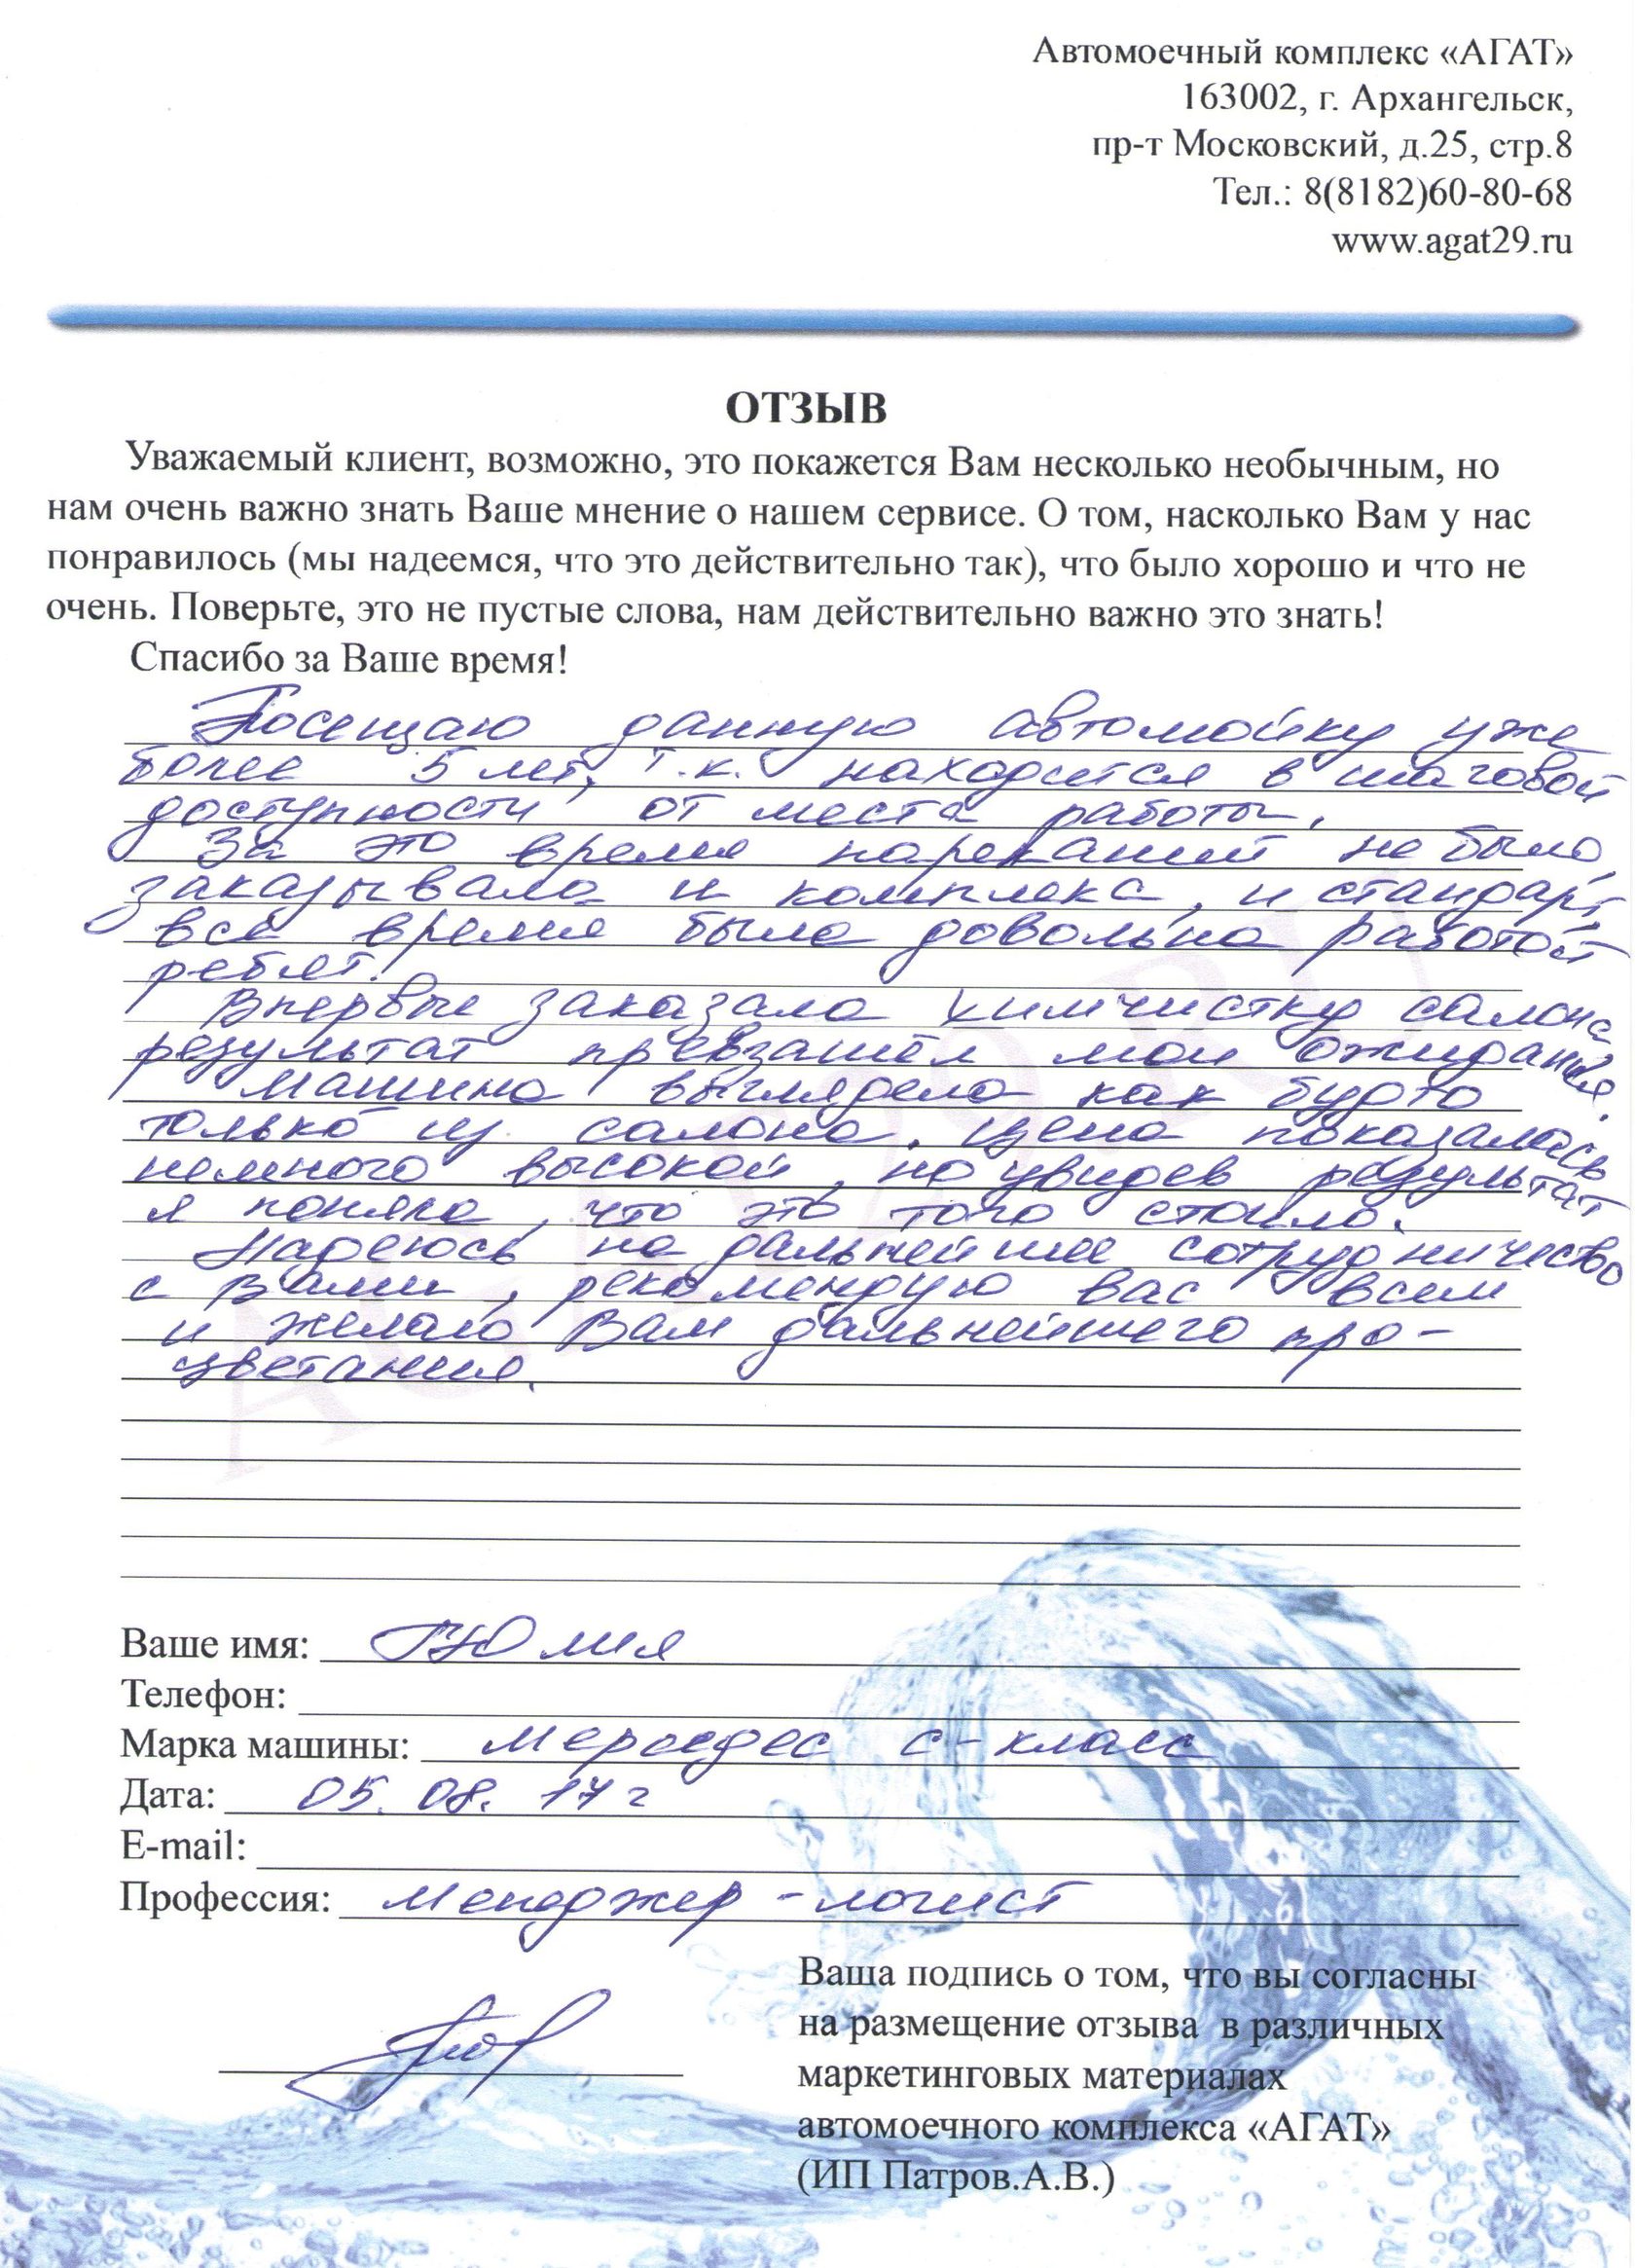 Автомоечный комплекс «АГАТ»
163002, г. Архангельск,
пр-т Московский, д.25, стр.8
Тел.: 8(8182)60-80-68
www.agat29.ru
ОТЗЫВ
Уважаемый клиент, возможно, это покажется Вам несколько необычным, но
нам очень важно знать Ваше мнение о нашем сервисе. О том, насколько Вам у нас
понравилось (мы надеемся, что это действительно так), что было хорошо и что не
очень. Поверьте, это не пустые слова, нам действительно важно это знать!
Спасибо за Ваше время!
Посещаю данную автомойку уже
более 5 лет, т.к. находится в шаговой
доступности от места работы.
За это время нареканий не было,
заказывала и комплекс, и стандарт
всё время была довольна работой
ребят.
Впервые заказала химчистку салона
результат превзашёл мои ожидания.
Машина выглядела как будто
только из салона. Цена показалась
немного высокой, но увидев результат
я поняла, что это того стоило.
Надеюсь на дальнейшее сотрудничество
с Вами, рекомендую вас всем
и желаю Вам дальнейшего про-
цветания.
AGAT29.RU
Ваше имя: Юлия
Телефон:
Марка машины: Мерседес с-класс
Дата: 05.08.17г
E-mail:
Профессия: Менеджер-логист
Ваша подпись о том, что вы согласны
на размещение отзыва в различных
маркетинговых материалах
автомоечного комплекса «АГАТ»
(ИП Патров.А.В.)